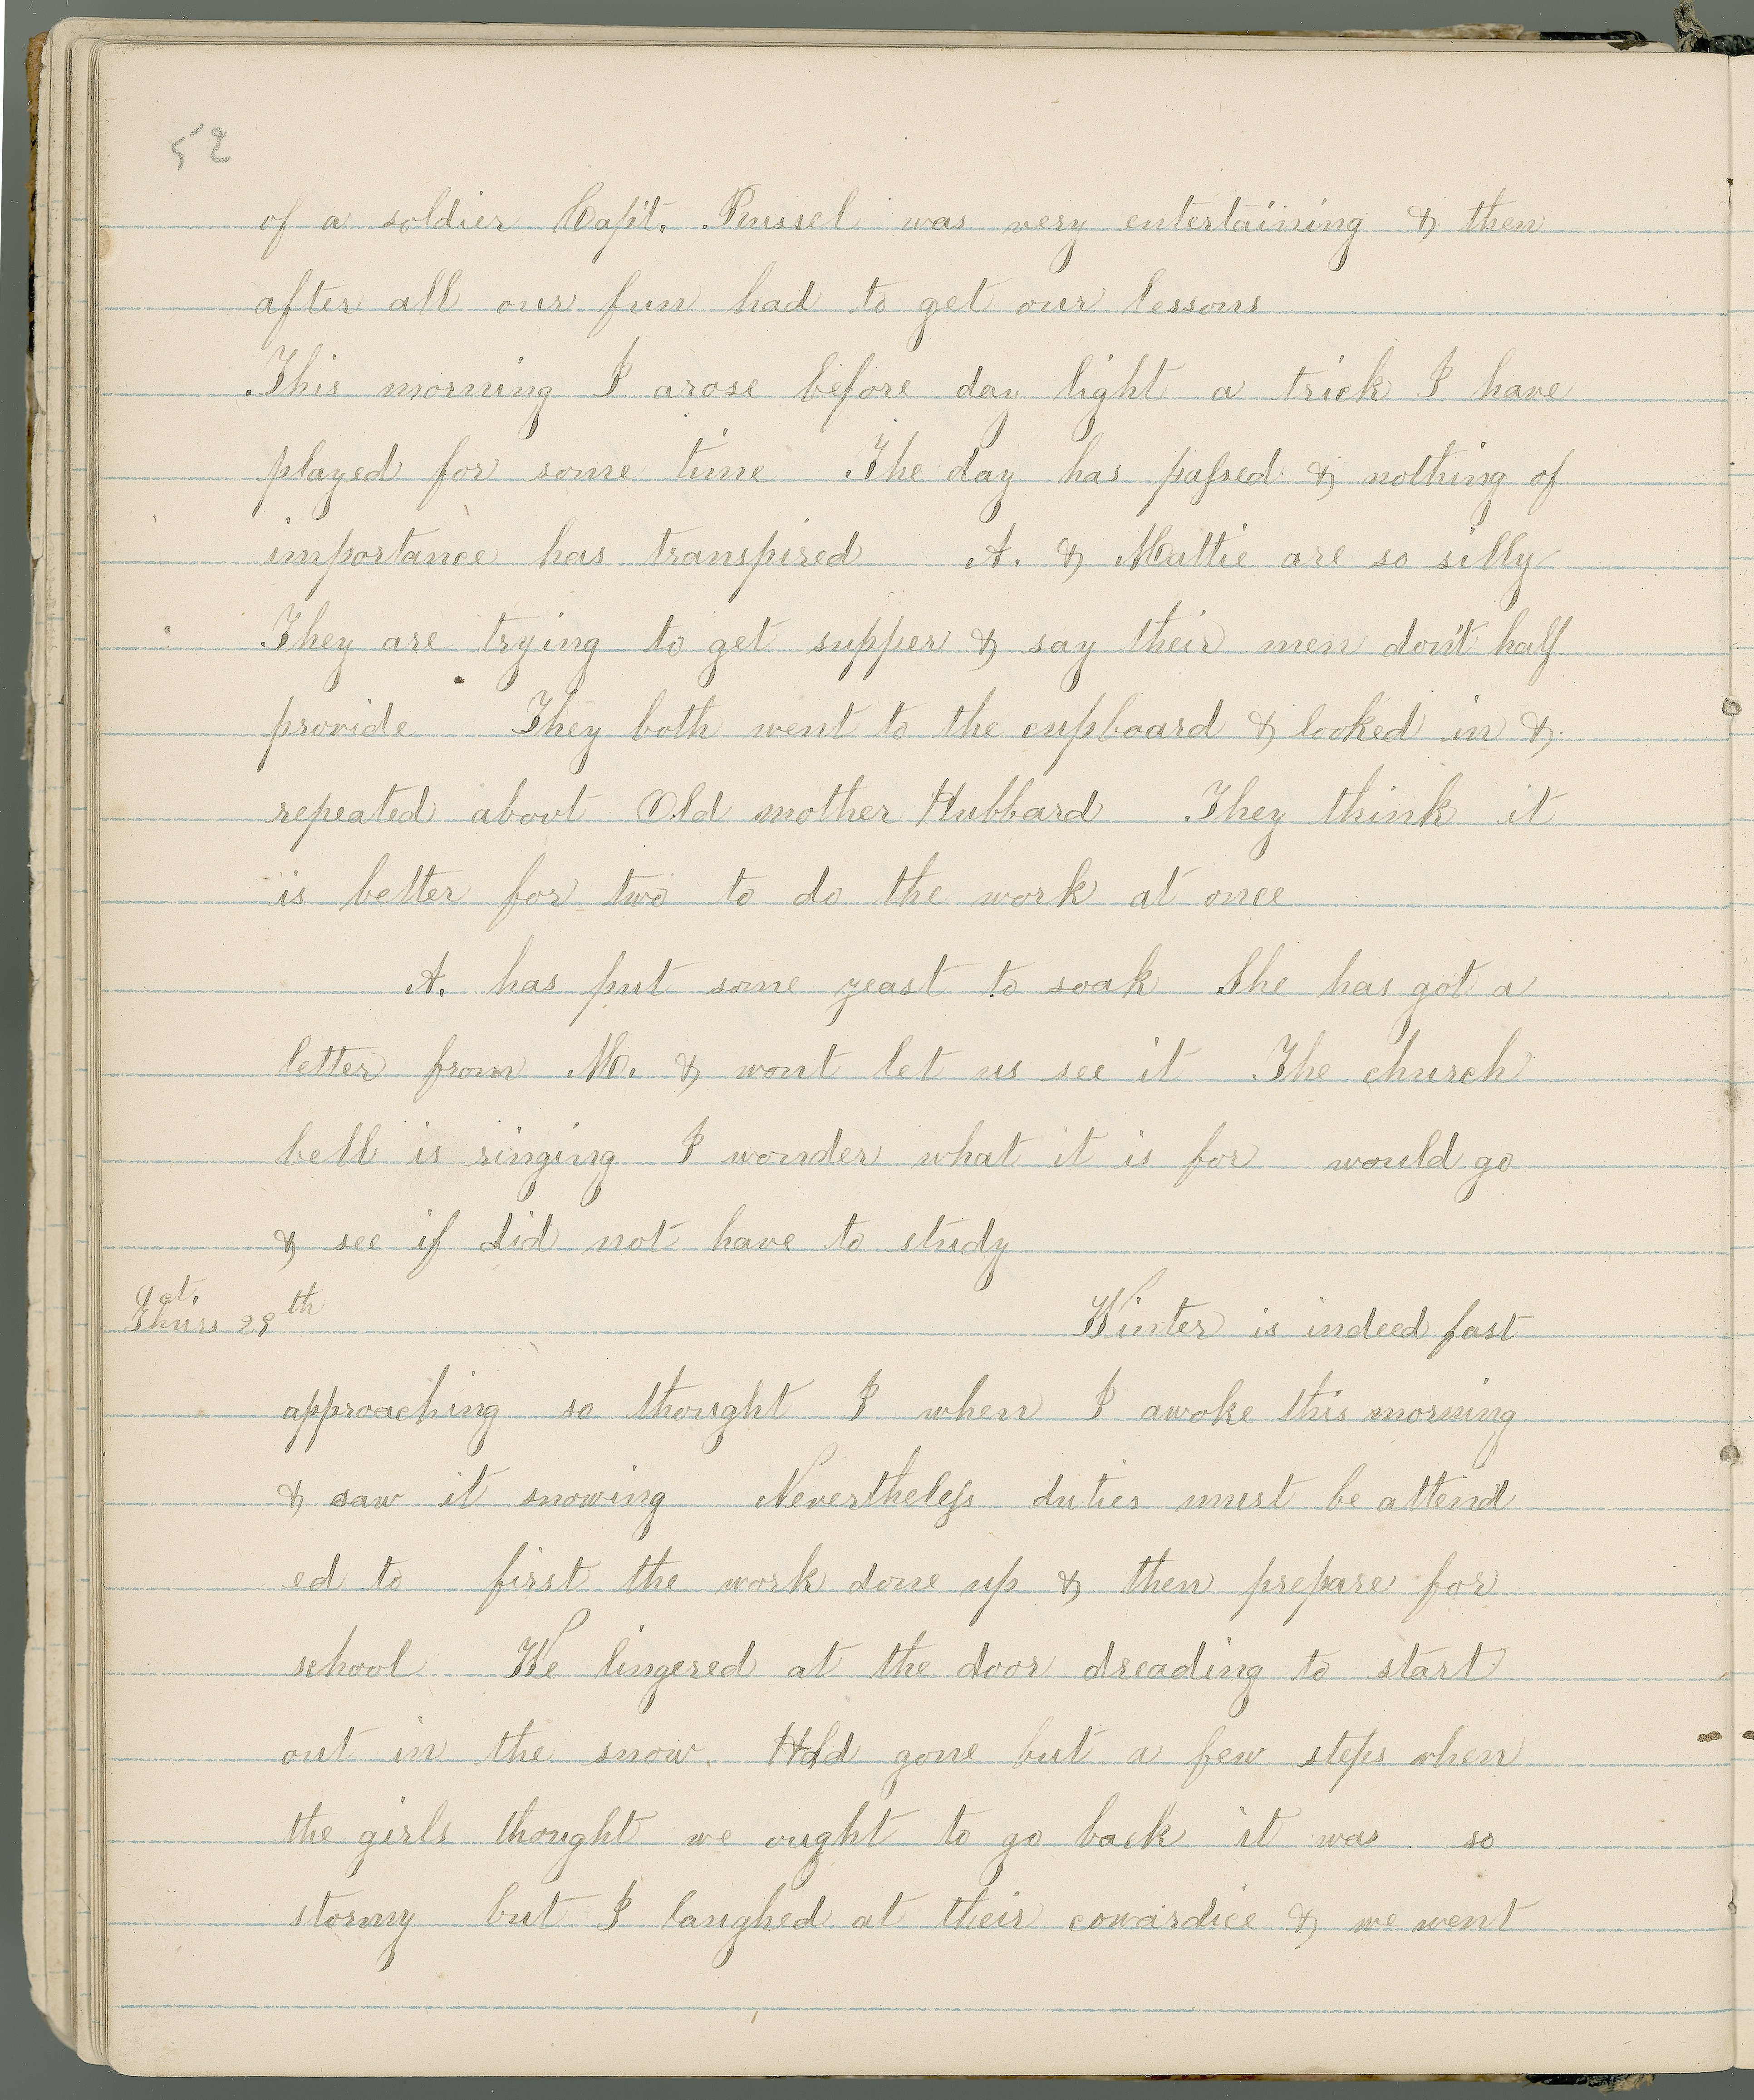 52
of a soldier Capt. Russel was very entertaining & then
after all our fun had to get our lessons
This morning I arose before day light a trick I have
played for some time The day has passed & nothing of
importance has transpired A. & Mattie are so silly
They are trying to get supper & say their men don't half
provide They both went to the cupboard & looked in &
repeated about Old mother Hubbard They think it
is better for two to do the work at once
A. has put some yeast to soak She has got a
letter from M. & wont let us see it The church
bell is ringing I wonder what it is for would go
& see if did not have to study
Oct.
Thurs 29th Winter is indeed fast
approaching so thought I when I awoke this morning
& saw it snowing Nevertheless duties must be attend
ed to first the work done up & then prepare for
school We lingered at the door dreading to start
out in the snow. Had gone but a few steps when
the girls thought we ought to go back it was so
stormy but I laughed at their cowardice & we went